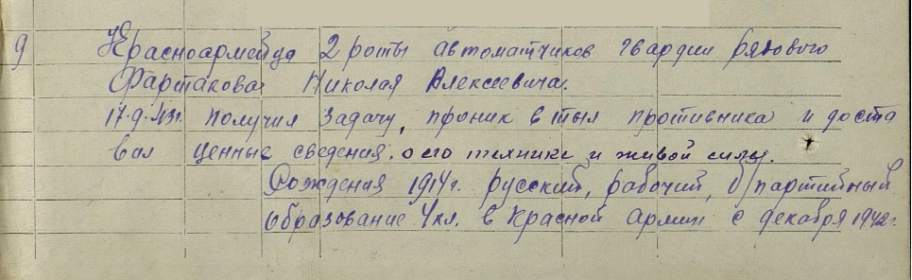 9 Красноармейца 2 роты автоматчиков гвардии рядового
Фартакова Николая Алексеевича.
17.9.43г. получил задачу, проник в тыл противника и доста
вил ценные сведения, о его технике и живой силы.
Рождения 1914г. русский, рабочий, б/партийный
образование 4кл. в Красной армии с декабря 1942г.